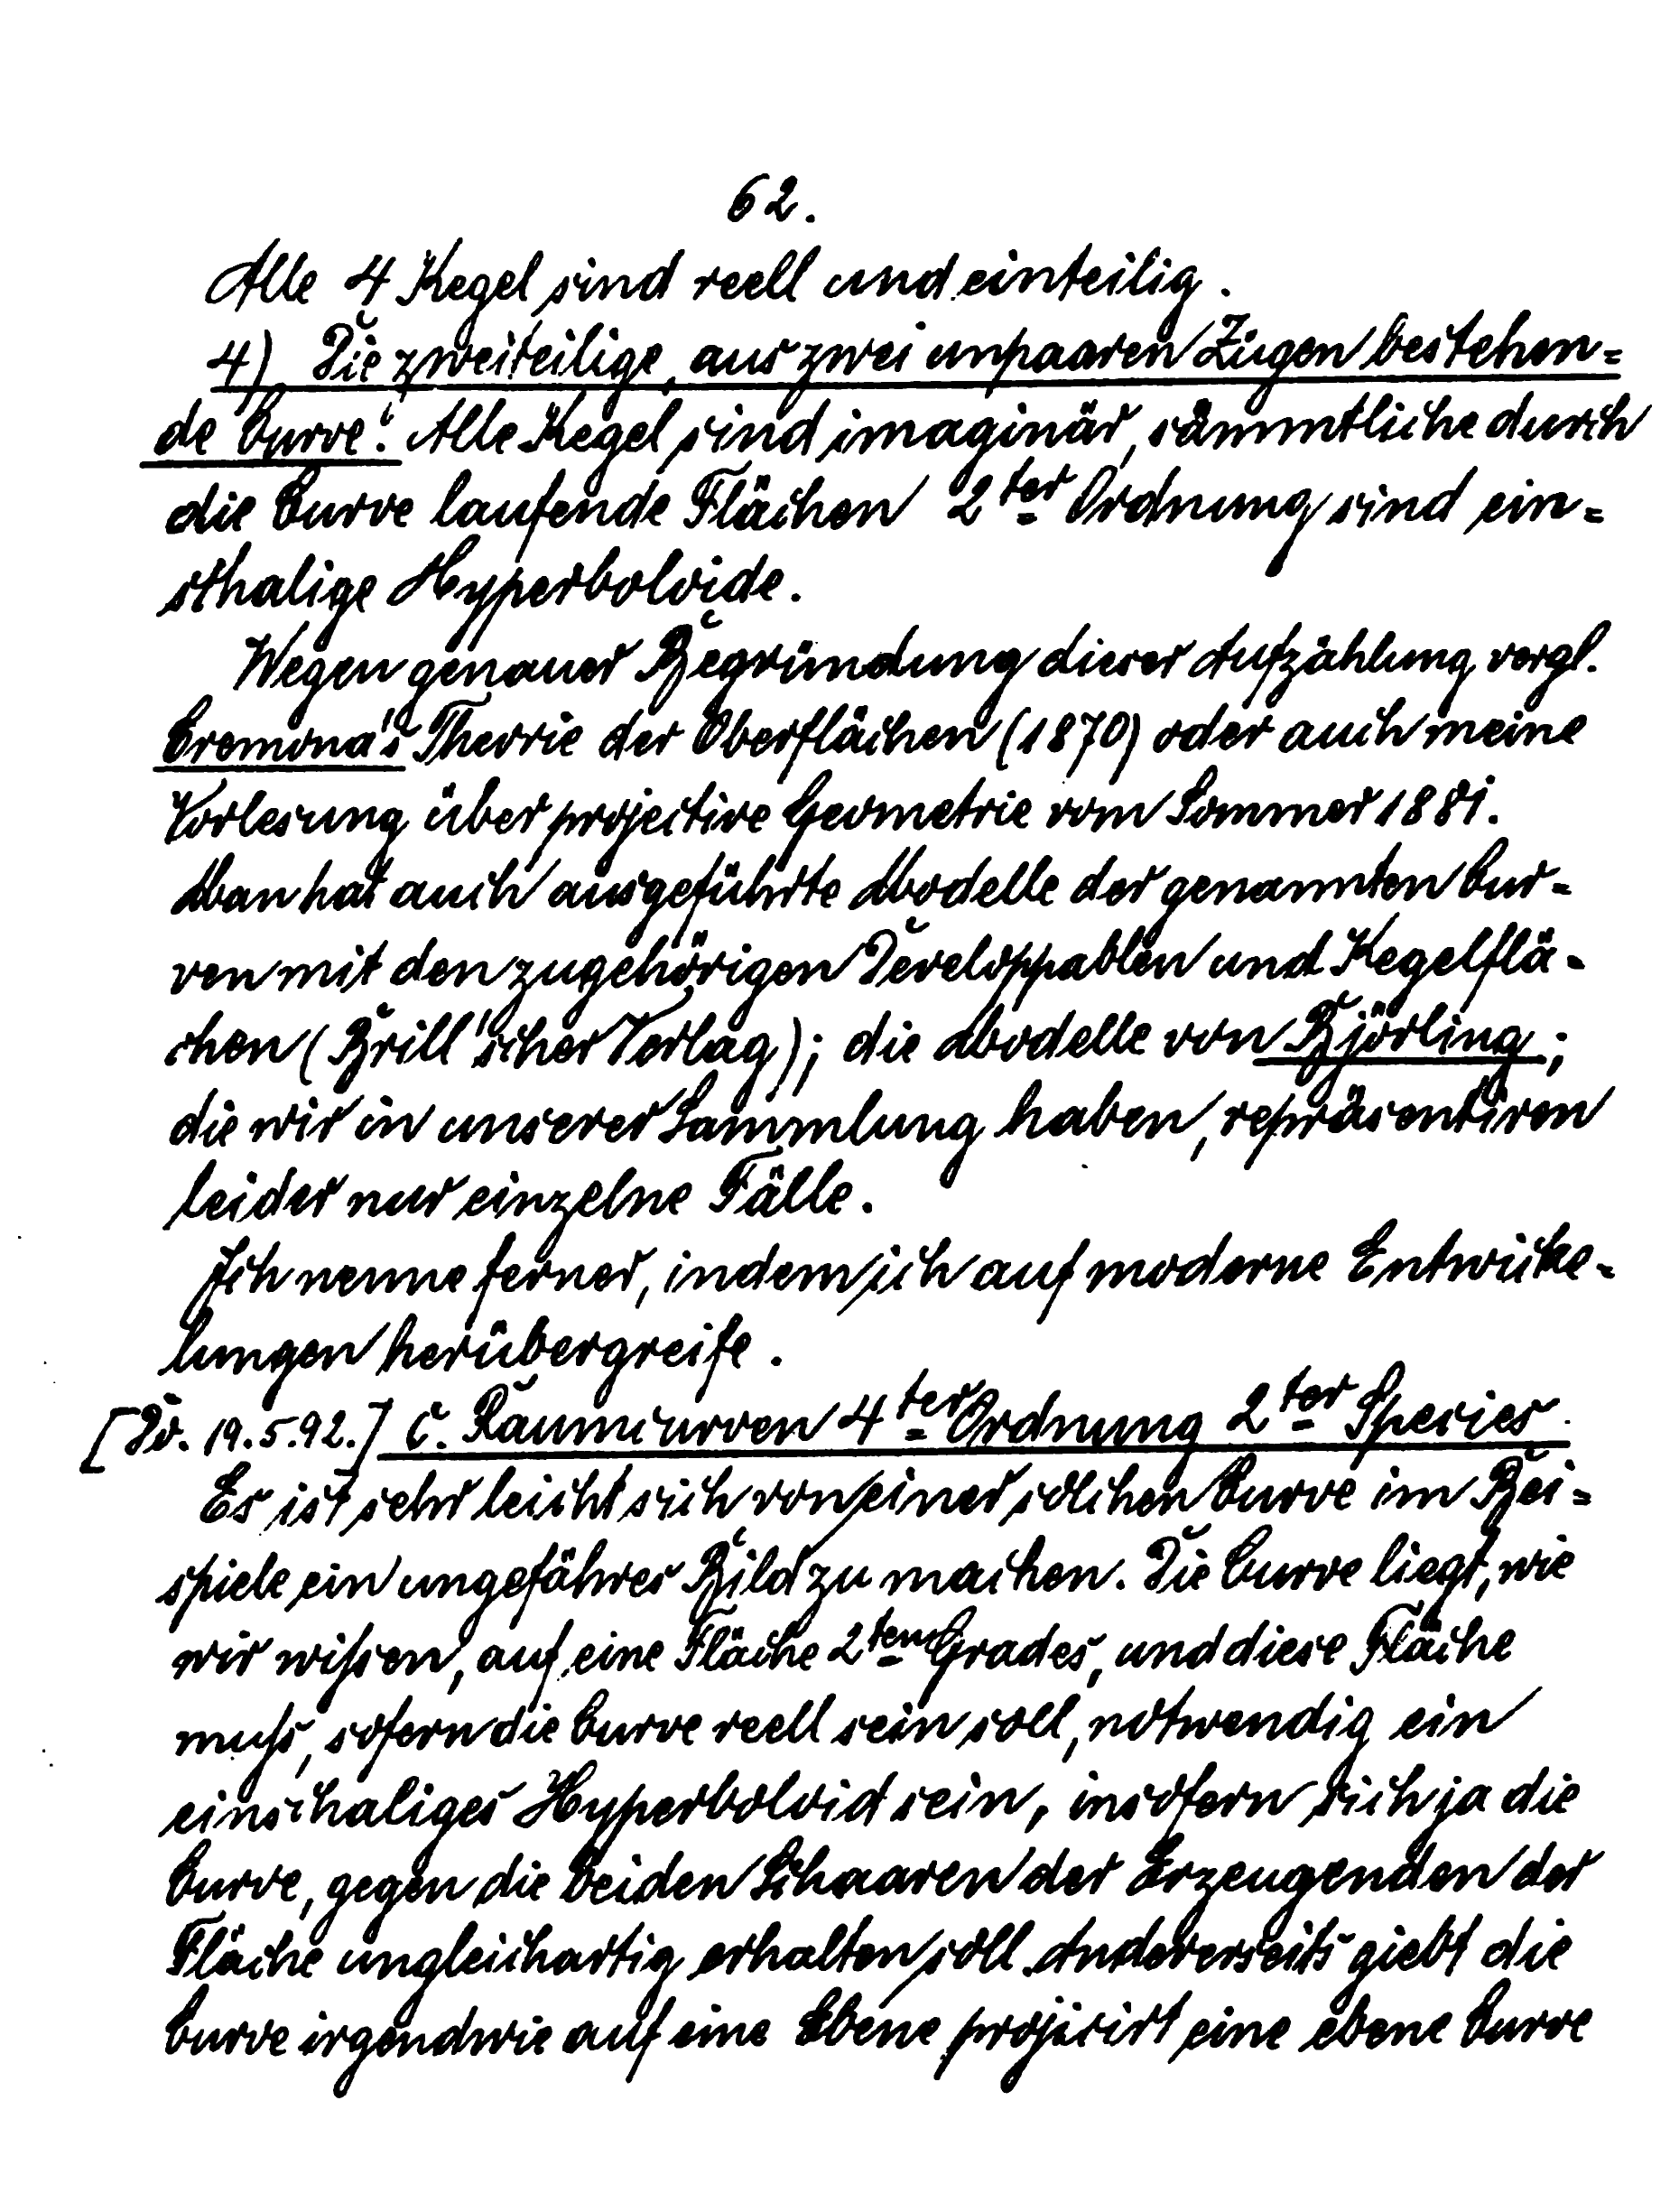 62.
Alle 4 Kegel sind reell und einteilig.
4) Die zweiteilige, aus zwei unpaaren Zügen bestehen=
de Curve. Alle Kegel sind imaginär, sämmtliche durch
die Curve laufende Flächen 2ter Ordnung sind ein=
schalige Hyperboloide.
Wegen genauer Begründung dieser Aufzählung vergl.
Cremona's Theorie der Oberflächen (1870) oder auch meine
Vorlesung über projective Geometrie vom Sommer 1881.
Man hat auch ausgeführte Modelle der genannten Cur-
ven mit den zugehörigen Developpablen und Kegelflä-
chen (Brill'scher Verlag); die Modelle von Björling;
die wir in unserer Sammlung haben, repräsentiren
leider nur einzelne Fälle.
Ich nenne ferner, indem ich auf moderne Entwicke-
lungen herübergreife.
[Do. 19.5.92.] C. Raumcurven 4ter Ordnung 2ter Species.
Es ist sehr leicht sich von einer solchen Curve im Bei=
spiele ein ungefähres Bild zu machen. Die Curve liegt, wie
wir wissen, auf eine Fläche 2ten Grades, und diese Fläche
muss, sofern die Curve reell sein soll, notwendig ein
einschaliges Hyperboloid sein, insofern sich ja die
Curve, gegen die beiden Schaaren der Erzeugenden der
Fläche ungleichartig erhalten soll. Andererseits giebt die
Curve irgendwie auf eine Ebene projicirt eine ebene Curve